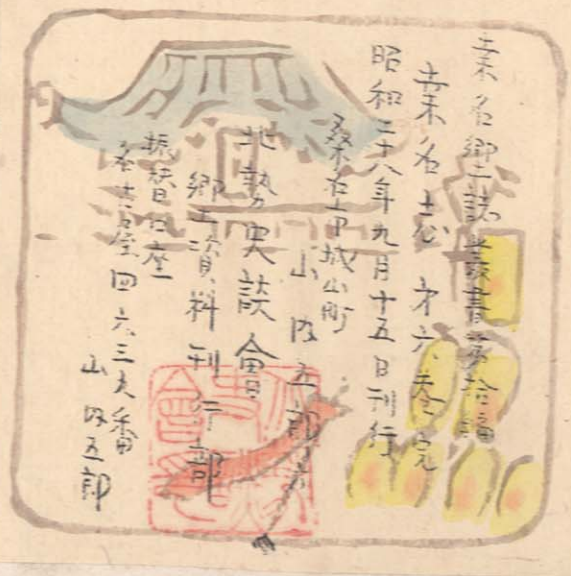 桑名郷土誌叢書第拾編
桑名志 才六巻 完
昭和二十八年九月十五日刊行
桑名市城山町
山内五郎方
北勢史談會
郷土資料刊行部
振替口座
名古屋四六三九番
山内五郎